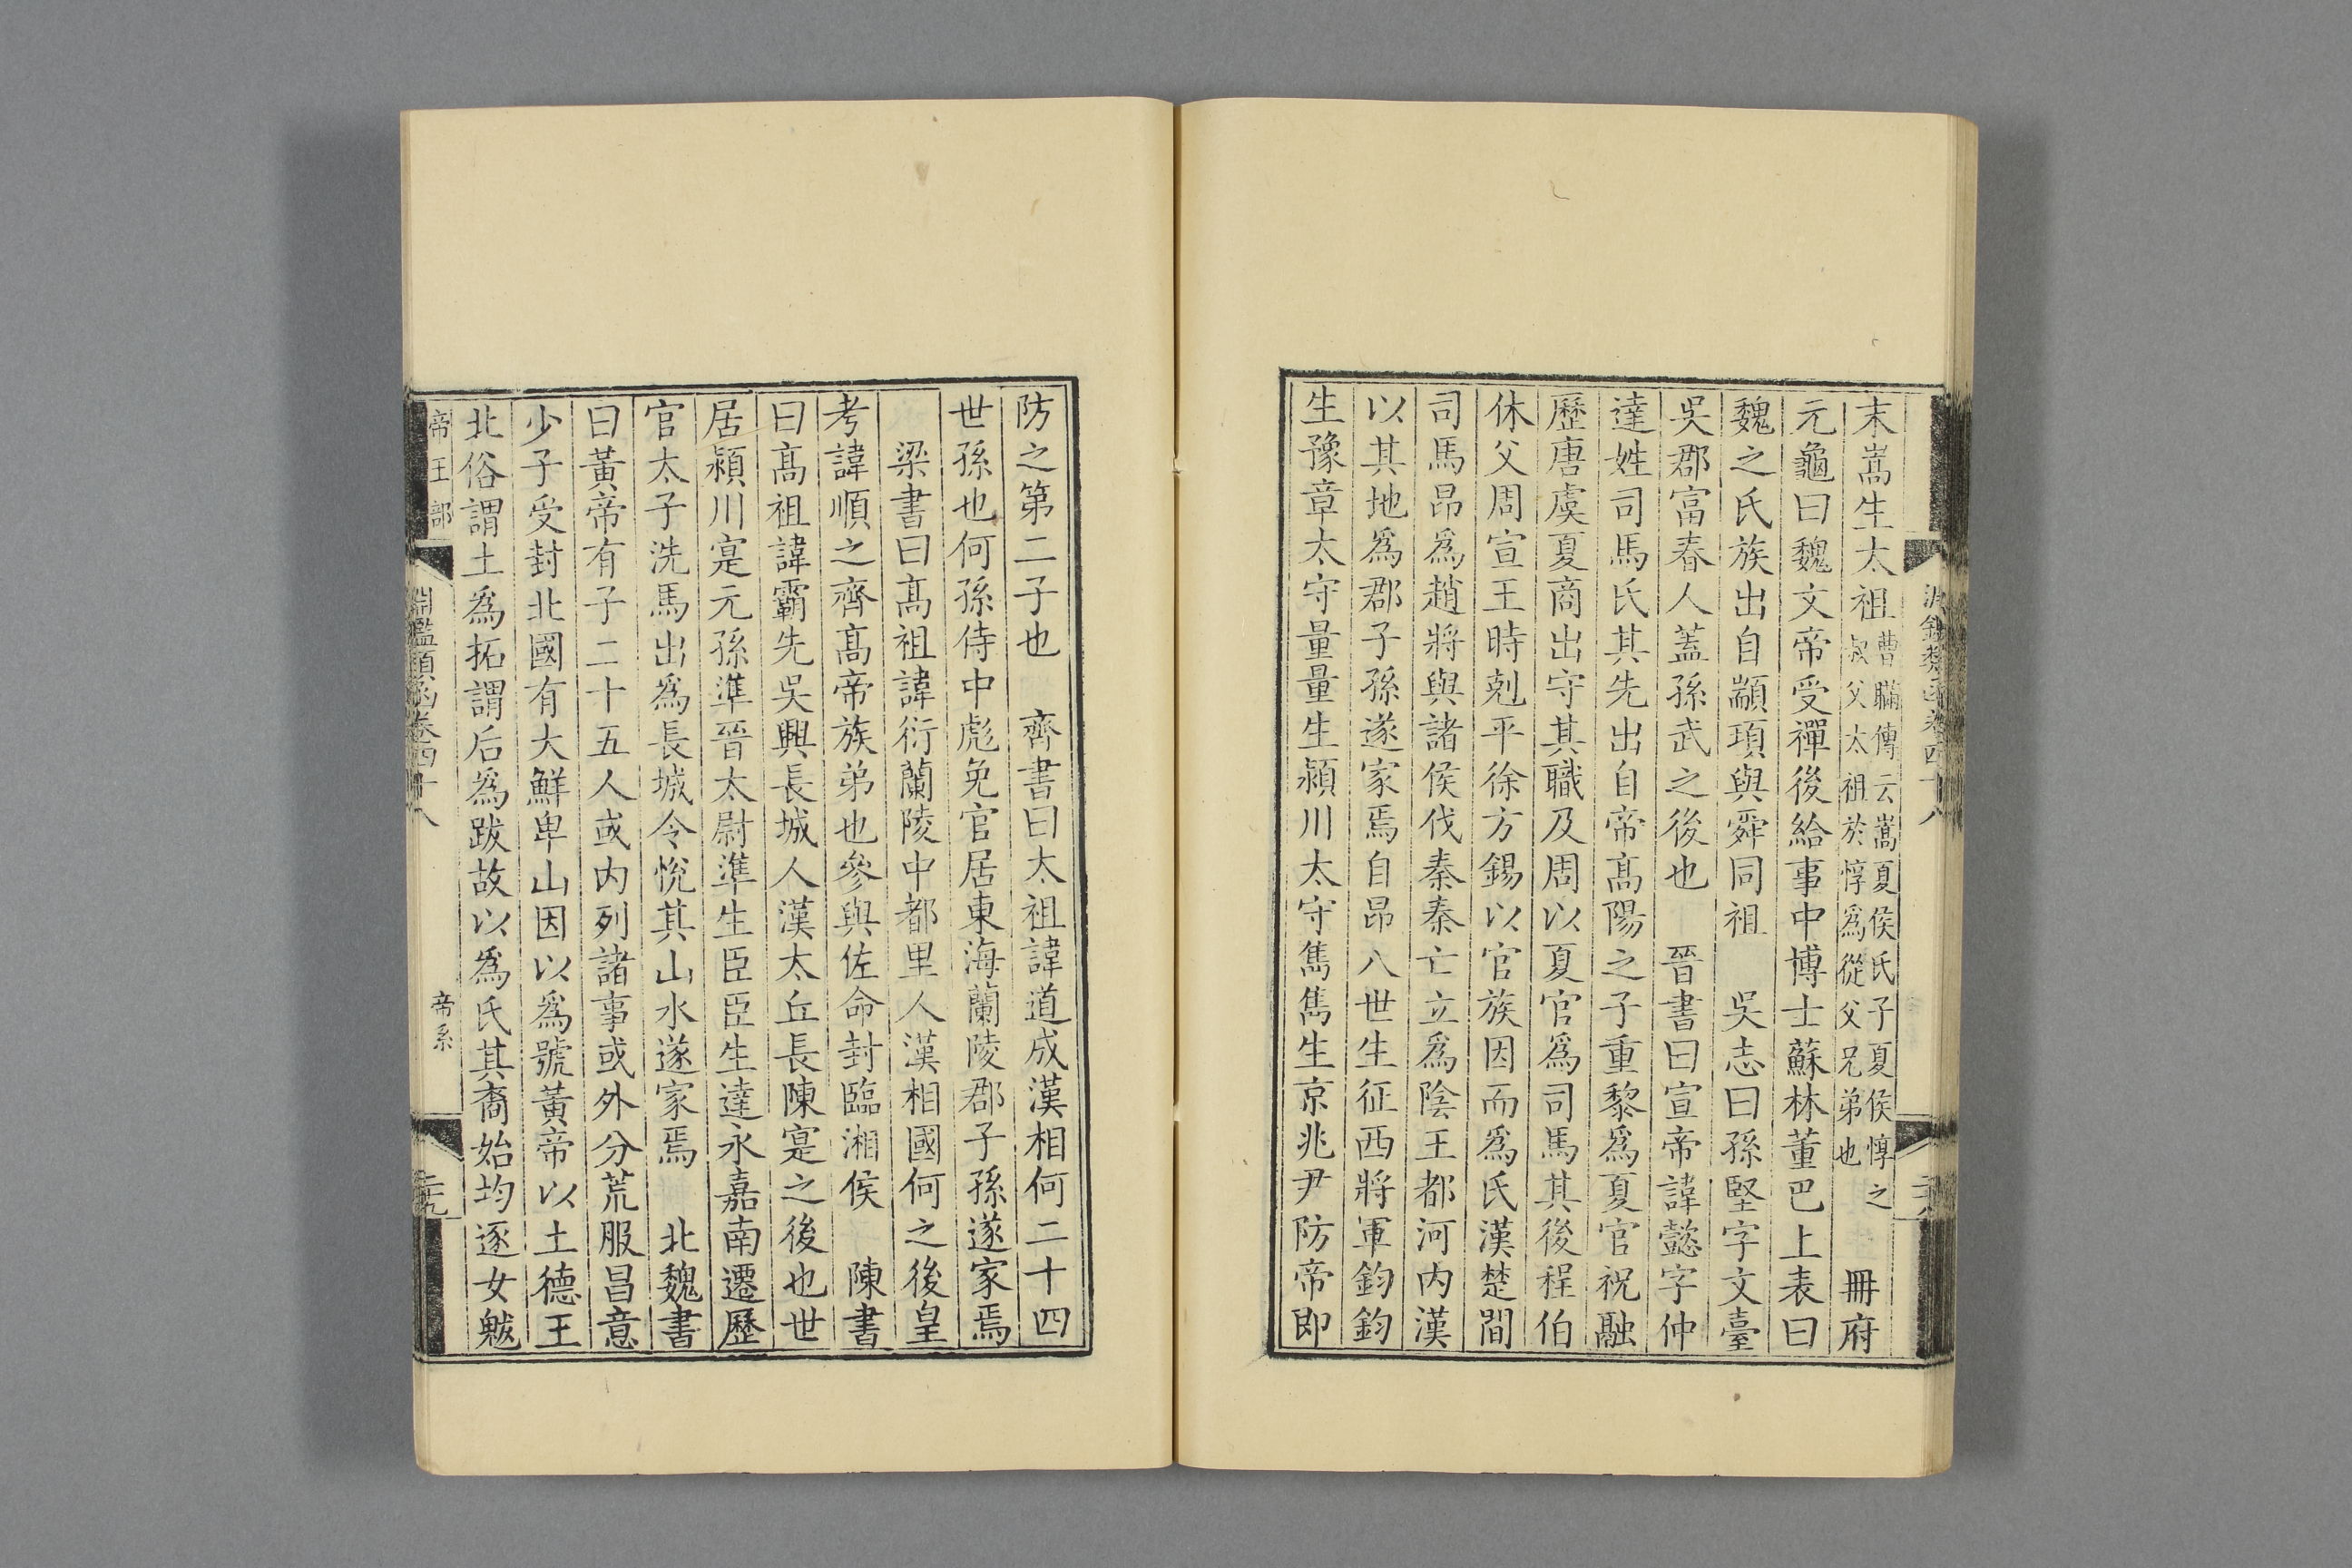 末嵩生太祖曹瞞傳云嵩夏侯氏子夏侯惇之叔父太祖於惇爲從父兄弟也　冊府
元龜曰魏文帝受禪後給事中博士蘇林董巴上表曰
魏之氏族出自顓頊與舜同祖　吳志曰孫堅字文臺
吳郡富春人蓋孫武之後也　晉書曰宣帝諱懿字仲
達姓司馬氏其先出自帝高陽之子重黎爲夏官祝融
歷唐虞夏商出守其職及周以夏官爲司馬其後程伯
休父周宣王時剋平徐方錫以官族因而爲氏漢楚間
司馬昂爲趙將與諸侯伐秦秦亡立爲陰王都河内漢
以其地爲郡子孫遂家焉自昂八世生征西將軍鈞鈞
生豫章太守量量生潁川太守雋雋生京兆尹防帝即
淵鑑類函卷四十八
二十八
防之第二子也　齊書曰太祖諱道成漢相何二十四
世孫也何孫侍中彪免官居東海蘭陵郡子孫遂家焉
梁書曰高祖諱衍蘭陵中都里人漢相國何之後皇
考諱順之齊高帝族弟也參與佐命封臨湘侯　陳書
曰高祖諱霸先吳興長城人漢太丘長陳寔之後也世
居潁川寔元孫準晉太尉準生臣臣生達永嘉南遷歷
官太子洗馬出爲長城令悅其山水遂家焉　北魏書
曰黃帝有子二十五人或内列諸事或外分荒服昌意
少子受封北國有大鮮卑山因以爲號黃帝以土德王
北俗謂土爲拓謂后爲跋故以爲氏其裔始均逐女魃
帝王部
淵鑑類函卷四十八
帝系
二十九